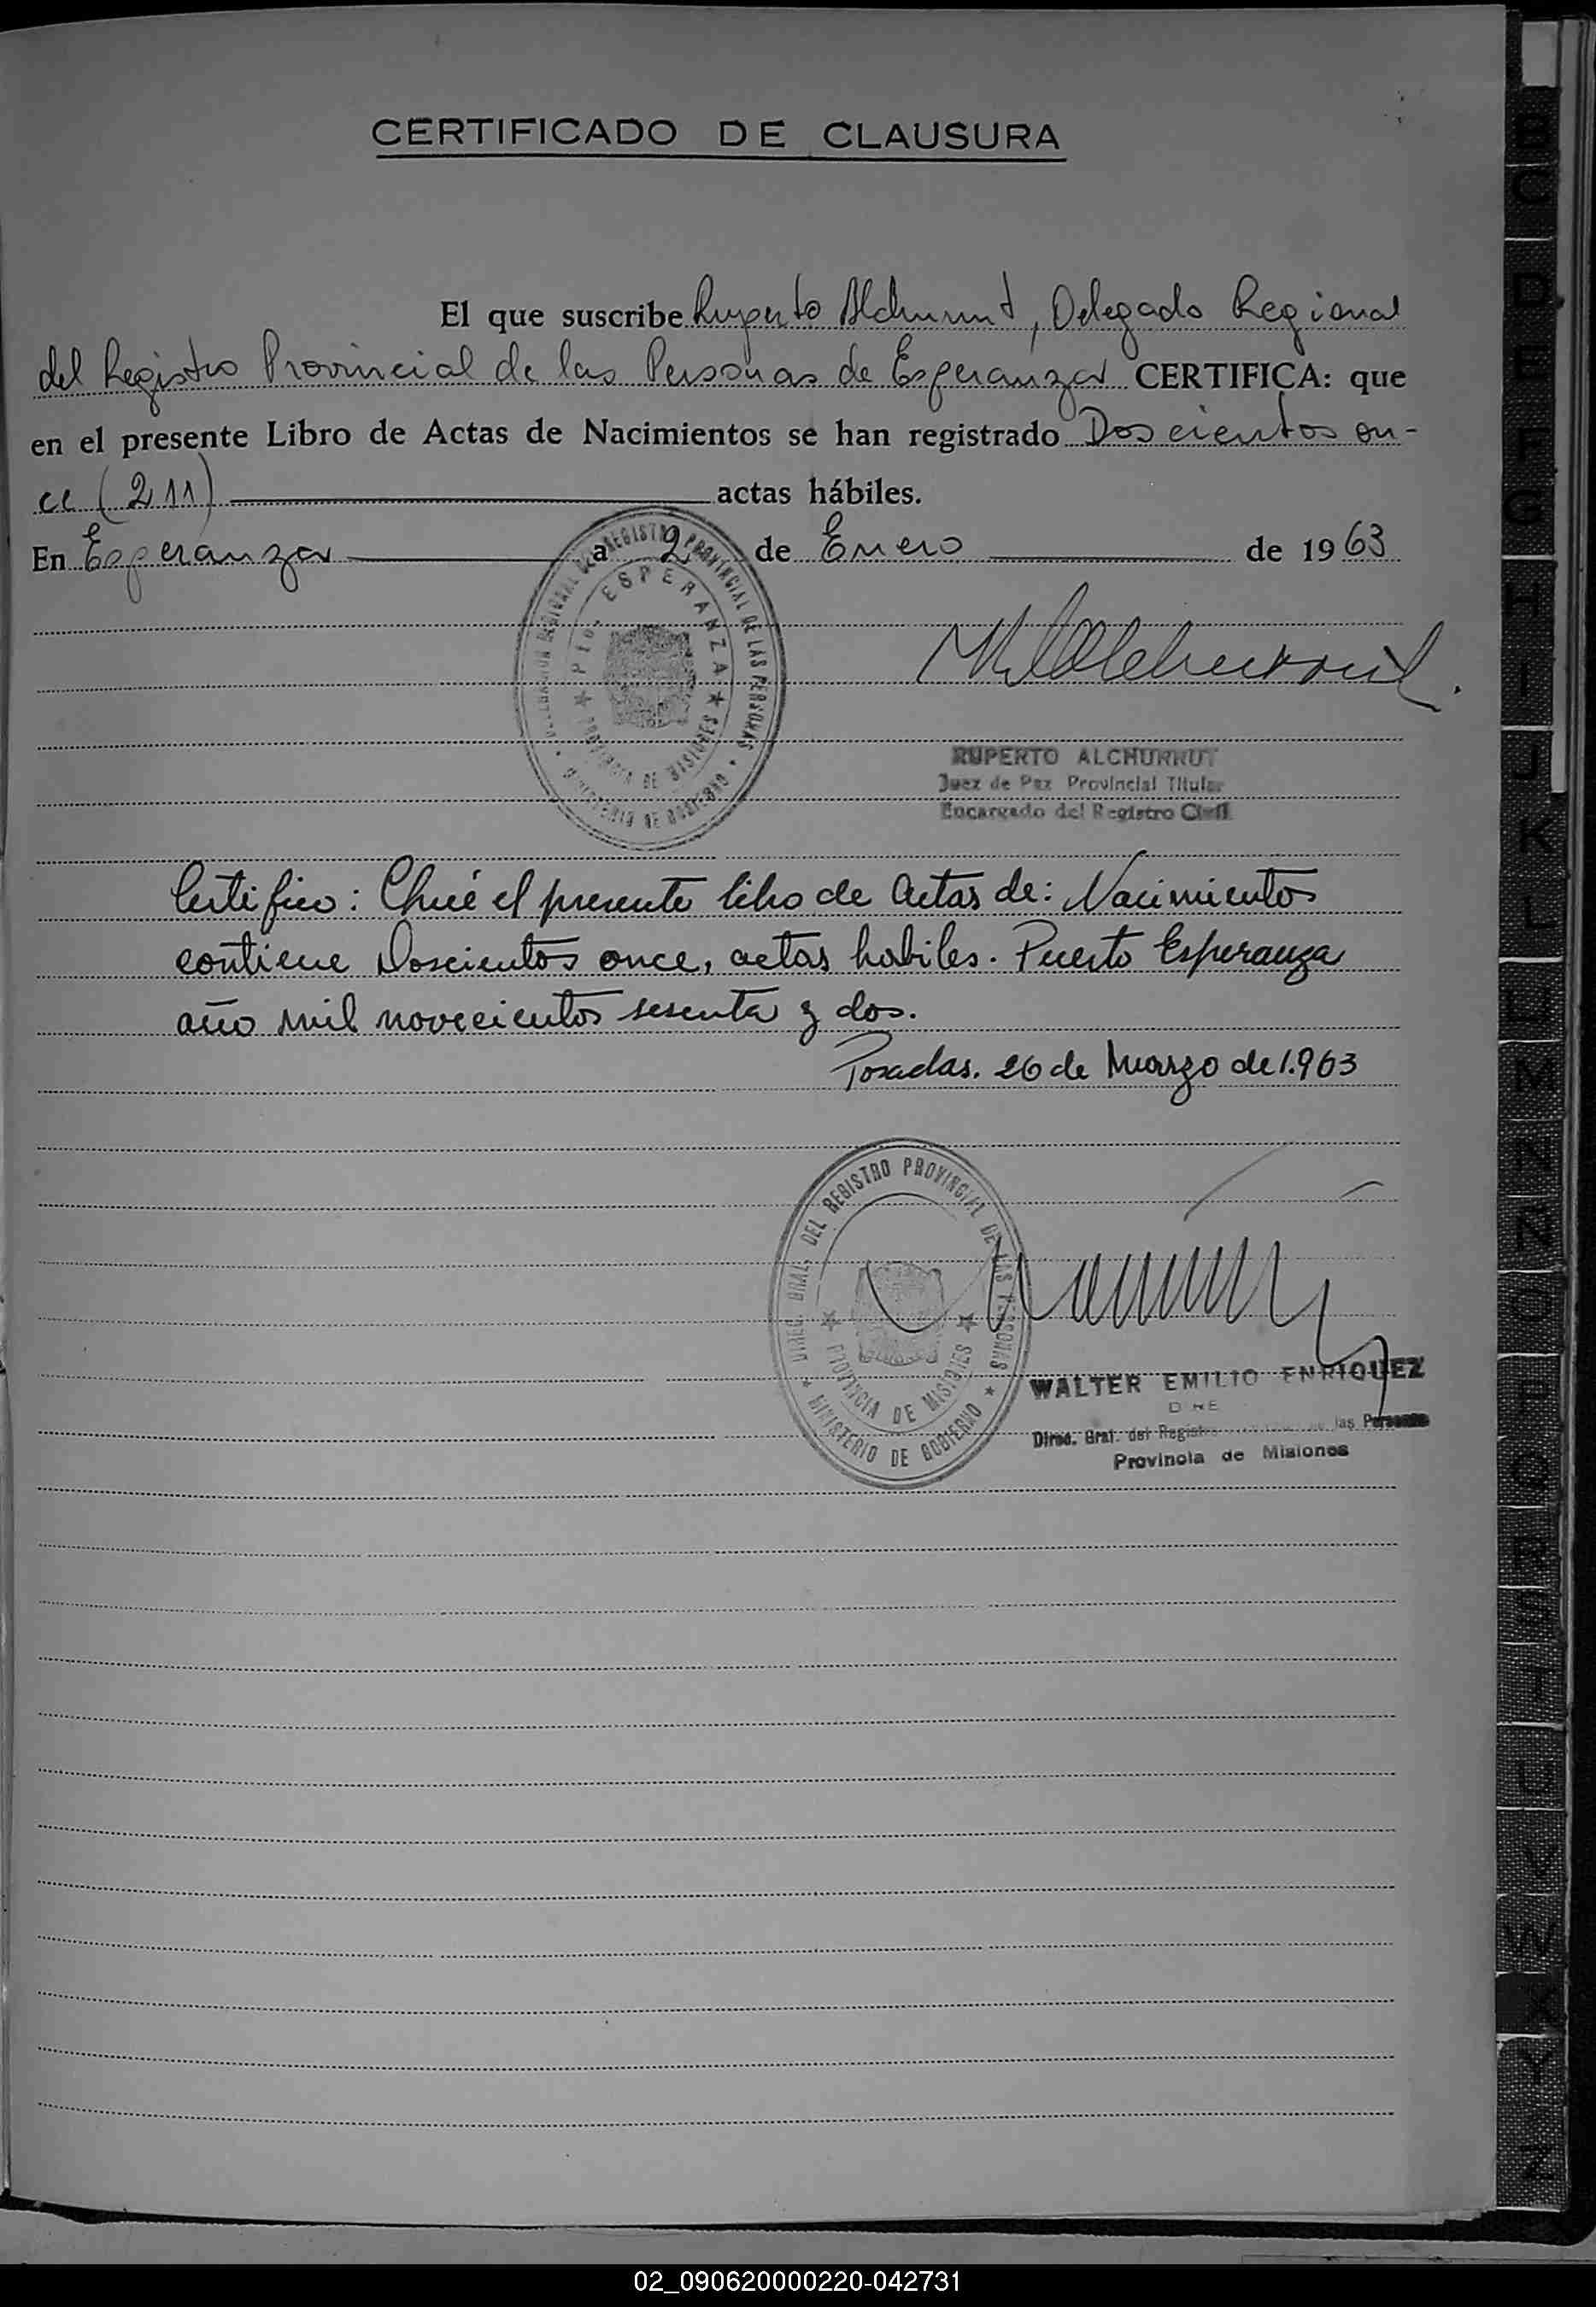 CERTIFICADO DE CLAUSURA
El que suscribe Ruperto Alchurrut, Delegado Regional
del Registro Provincial de las Personas de Esperanza CERTIFICA: que
en el presente Libro de Actas de Nacimientos se han registrado Doscientos on-
ce (211) actas hábiles.
En Esperanza a 2 de Enero de 1963
DELEGACION REGIONAL DEL REGISTRO PROVINCIAL DE LAS PERSONAS
MINISTERIO DE GOBIERNO
Pto. ESPERANZA
PROVINCIA DE MISIONES
RUPERTO ALCHURRUT
Juez de Paz Provincial Titular
Encargado del Registro Civil
Certifico: Que el presente libro de Actas de: Nacimientos
contiene Doscientos once, actas habiles. Puerto Esperanza
año mil novecientos sesenta y dos.
Posadas. 26 de Marzo de 1.963
DIREC. GRAL. DEL REGISTRO PROVINCIAL DE LAS PERSONAS
MINISTERIO DE GOBIERNO
PROVINCIA DE MISIONES
WALTER EMILIO ENRIQUEZ
Direc. Gral. del Registro las Personas
Provincia de Misiones
B
C
D
E
F
G
H
I
J
K
L
LL
M
N
Ñ
O
P
Q
R
S
T
U
V
W
X
Y
Z
02_090620000220-042731